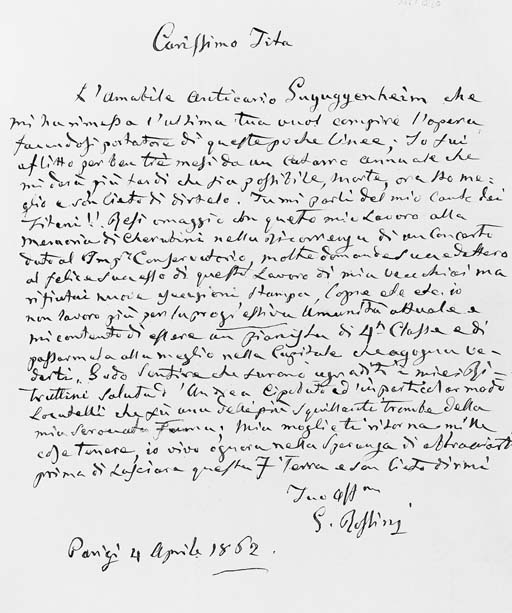 Carissimo Tita
L'amabile anticario Guguggenheim che
mi ha rimessa l'ultima tua vuol compire l'opera
facendosi portatore di queste poche linee; Io fui
aflitto per ben tre mesi da un catarro annuale che
mi darà più tardi che sia possibile, morte, ora sto me-
glio e son lieto di dirtelo. Tu mi parli del mio Canto dei
Titani!! Resi omaggio con questo mio Lavoro alla
memoria di Cherubini nella di un Concerto
dato al Conservatorio, molte domande succedettero
al felice successo di questo Lavoro di mia vecchiaia ma
rifiutai nuove stampa, Copie etc etc. io
non lavoro più per la progressiva Umanità attuale e
mi contento di essere un pianista di 4ª Classe e di
passarmela alla meglio nella Capitale che agogna ve-
derti. Godo sentire che furono graditi i miei
saluti d'Ancillo ed in particolar modo
Locatelli che fu una delle più squillante trombe della
mia Fama; Mia moglie ti ritorna mille
cose tenere, io vivo ognora nella Speranza di abbracciarti
prima di Lasciare questa Terra e son lieto dirmi
Tuo Aff.mo
G. Rossini
Parigi 4 Aprile 1862.